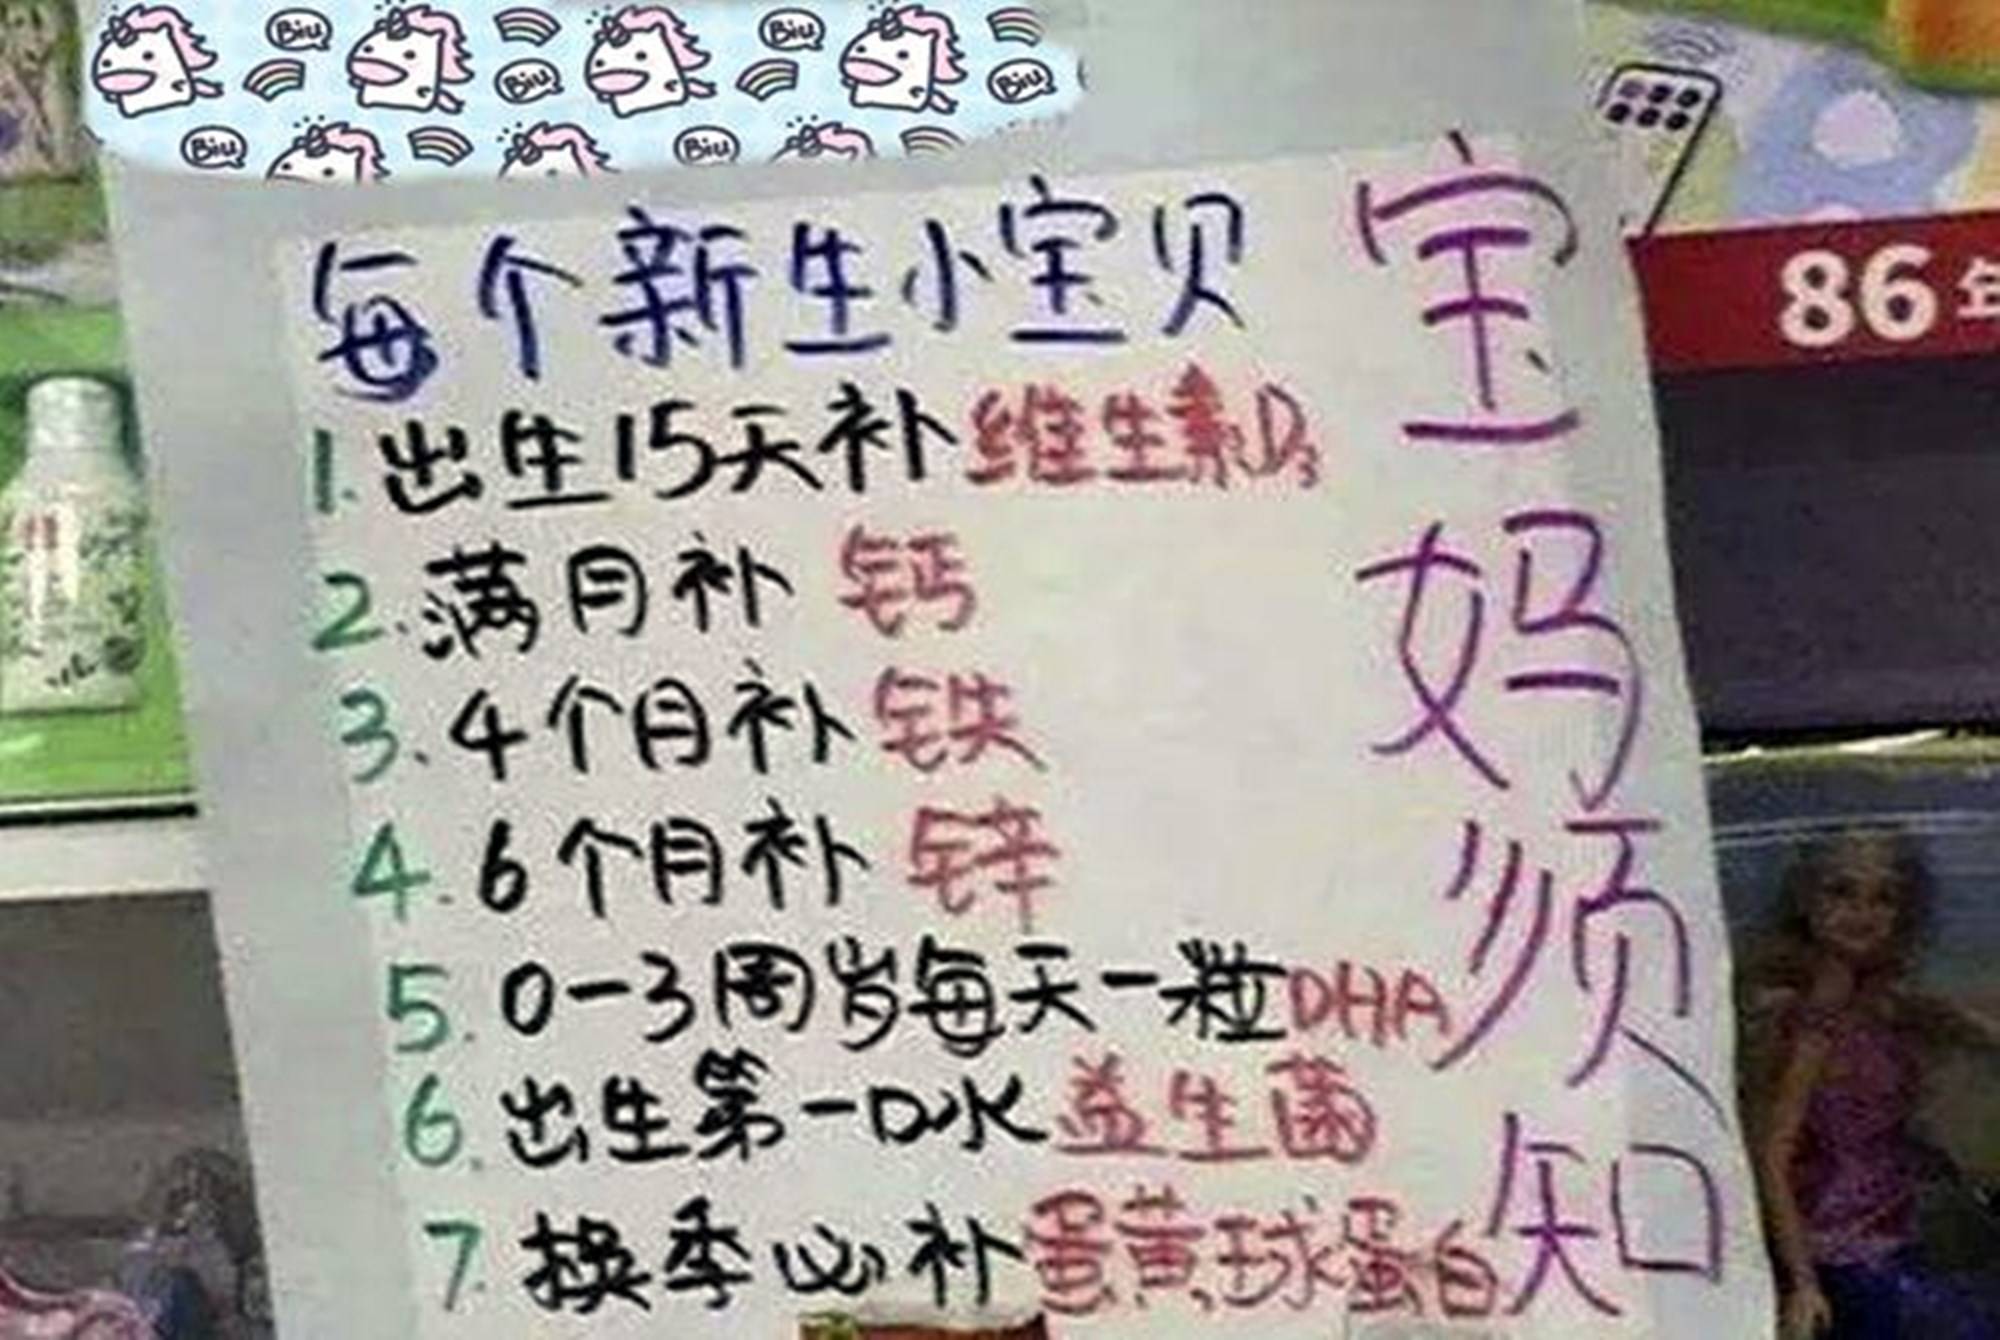 Biu Biu
Biu Biu
Biu Biu
每个新生小宝贝
1.出生15天补维生素D3
2.满月补钙
3.4个月补铁
4.6个月补锌
5.0-3周岁每天一粒DHA
6.出生第一口水益生菌
7.换季必补蛋黄球蛋白
宝妈须知
86年